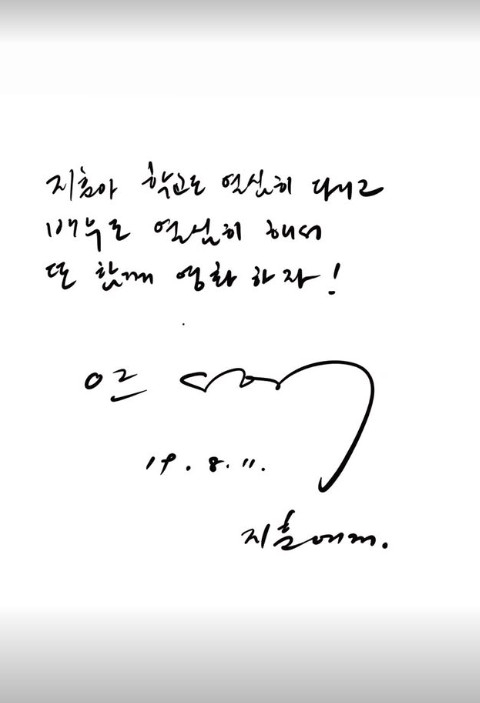 지흠아 학교도 열심히 다니고
배우로 열심히 해서
또 함께 영화 하자!
19. 8. 11.
지흠에게.